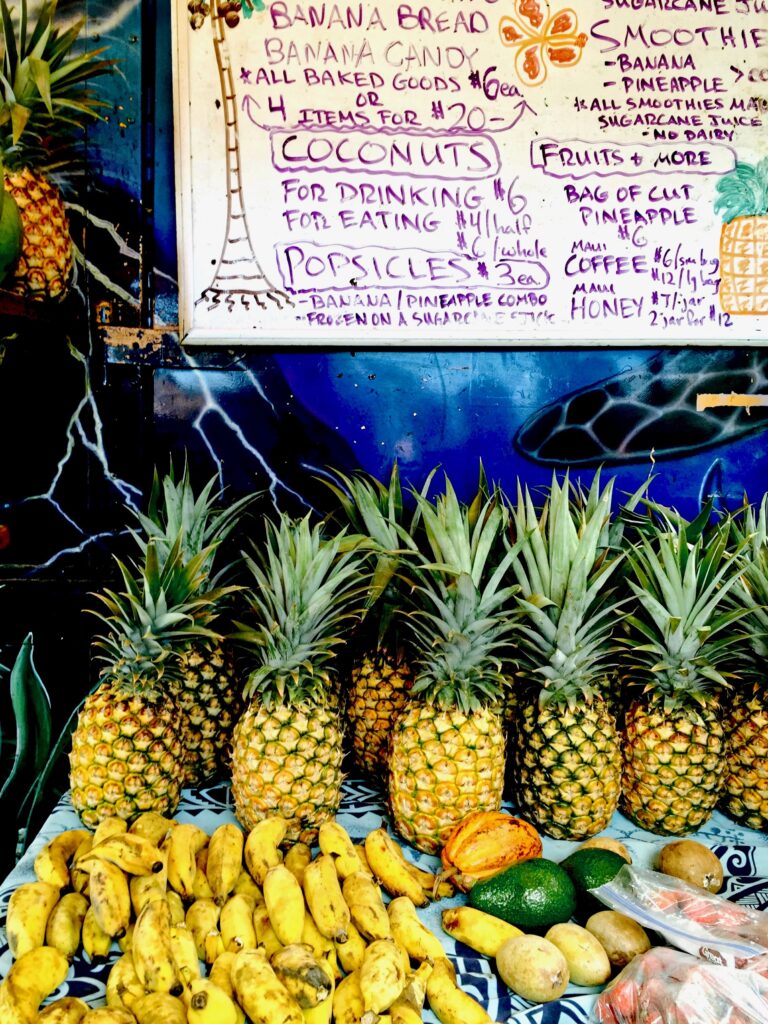 BANANA BREAD
BANANA CANDY
*ALL BAKED GOODS $6ea
OR
4 ITEMS FOR $20-
COCONUTS
FOR DRINKING $6
FOR EATING $4/half
$6/whole
POPSICLES $3ea.
-BANANA/PINEAPPLE COMBO
-FROZEN ON A SUGARCANE STICK
SUGARCANE JU
SMOOTHIE
-BANANA
-PINEAPPLE >co
*ALL SMOOTHIES MA
SUGARCANE JUICE
-NO DAIRY
FRUITS + MORE
BAG OF CUT
PINEAPPLE
$6
MAUI
COFFEE $6/sm bag
$12/lg bag
MAUI
HONEY $7/jar
2 jar for $12